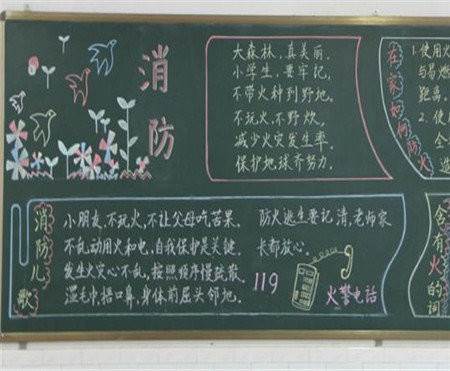 消防
大森林，真美丽．
小学生，要牢记，
不带火种到野地。
不玩火，不野炊，
减少火灾发生率．
保护地球齐努力．
在家如何防火
1. 使用火
与易燃
距离．
2. 使用
全
消防儿歌
小朋友，不玩火，不让父母吃苦果．
不乱动用火和电，自我保护是关键．
发生火灾心不乱，按照顺序慢疏散．
湿毛巾捂口鼻，身体前屈头邻地．
防火逃生要记清，老师家
长都放心．
119
火警电话
含有火的词